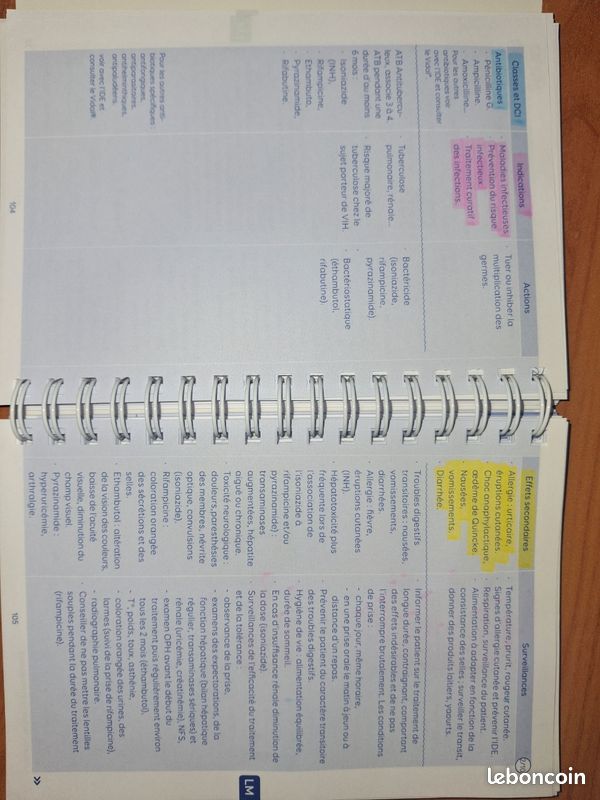 Classes et DCI
Antibiotiques
· Pénicilline G.
· Ampicilline.
· Amoxicilline...
Pour les autres
antibiotiques voir
avec l'IDE et consulter
le Vidal®.
ATB Antitubercu-
leux, associé 3 à 4
ATB pendant une
durée d'au moins
6 mois :
· Isoniazide
(INH),
· Rifampicine,
· Ethambutol,
· Pyrazinamide,
· Rifabutine.
Pour les autres anti-
biotiques spécifiques :
antifongiques,
antiparasitaires,
antihelminthiques,
antipaludéens,
voir avec l'IDE et
consulter le Vidal®.
Indications
· Maladies infectieuses.
· Prévention du risque
infectieux.
· Traitement curatif
des infections.
· Tuberculose
pulmonaire, rénale...
· Risque majoré de
tuberculose chez le
sujet porteur de VIH.
Actions
· Tuer ou inhiber la
multiplication des
germes.
Bactéricide
(isoniazide,
rifampicine,
pyrazinamide)
· Bactériostatique
(éthambutol,
rifabutine).
104
Effets secondaires
· Allergie : urticaire,
éruptions cutanées.
· Choc anaphylactique,
œdème de Quincke.
· Nausées,
vomissements.
· Diarrhée.
Troubles digestifs
transitoires : nausées,
vomissements,
diarrhées.
Allergie : fièvre,
éruptions cutanées
(INH).
Hépatotoxicité plus
fréquente lors de
l'association de
l'isoniazide à
rifampicine et/ou
pyrazinamide :
transaminases
augmentées, hépatite
aiguë ou chronique.
Toxicité neurologique :
douleurs, paresthésies
des membres, névrite
optique, convulsions
(isoniazide).
· Rifampicine :
coloration orangée
des sécrétions et des
selles.
· Ethambutol : altération
de la vision des couleurs,
baisse de l'acuité
visuelle, diminution du
champ visuel.
· Pyrazinamide :
hyperuricémie,
arthralgie.
Surveillances
· Température, prurit, rougeur cutanée.
· Signes d'allergie cutanée et prévenir l'IDE.
· Respiration, surveillance du patient.
· Alimentation à adapter en fonction de la
consistance des selles : surveiller le transit,
donner des produits laitiers, yaourts.
Informer le patient sur le traitement de
longue durée, contraignant, comportant
des effets indésirables et de ne pas
l'interrompre brutalement. Les conditions
de prise :
· chaque jour, même horaire,
· en une prise orale le matin à jeun ou à
distance d'un repas.
Prévenir le patient du caractère transitoire
des troubles digestifs.
· Hygiène de vie : alimentation équilibrée,
durée de sommeil.
· En cas d'insuffisance rénale diminution de
la dose (isoniazide).
Surveillances de l'efficacité du traitement
et de la tolérance :
· observance de la prise,
· examens des expectorations, de la
fonction hépatique (bilan hépatique
régulier, transaminases sériques) et
rénale (uricémie, créatinine), NFS,
· examen OPH avant le début du
traitement puis régulièrement environ
tous les 2 mois (éthambutol),
· T°, poids, toux, asthénie,
· coloration orangée des urines, des
larmes (suivi de la prise de rifampicine),
· radiographie pulmonaire.
Conseiller de ne pas mettre les lentilles
souples pendant la durée du traitement
(rifampicine).
105
LM
leboncoin